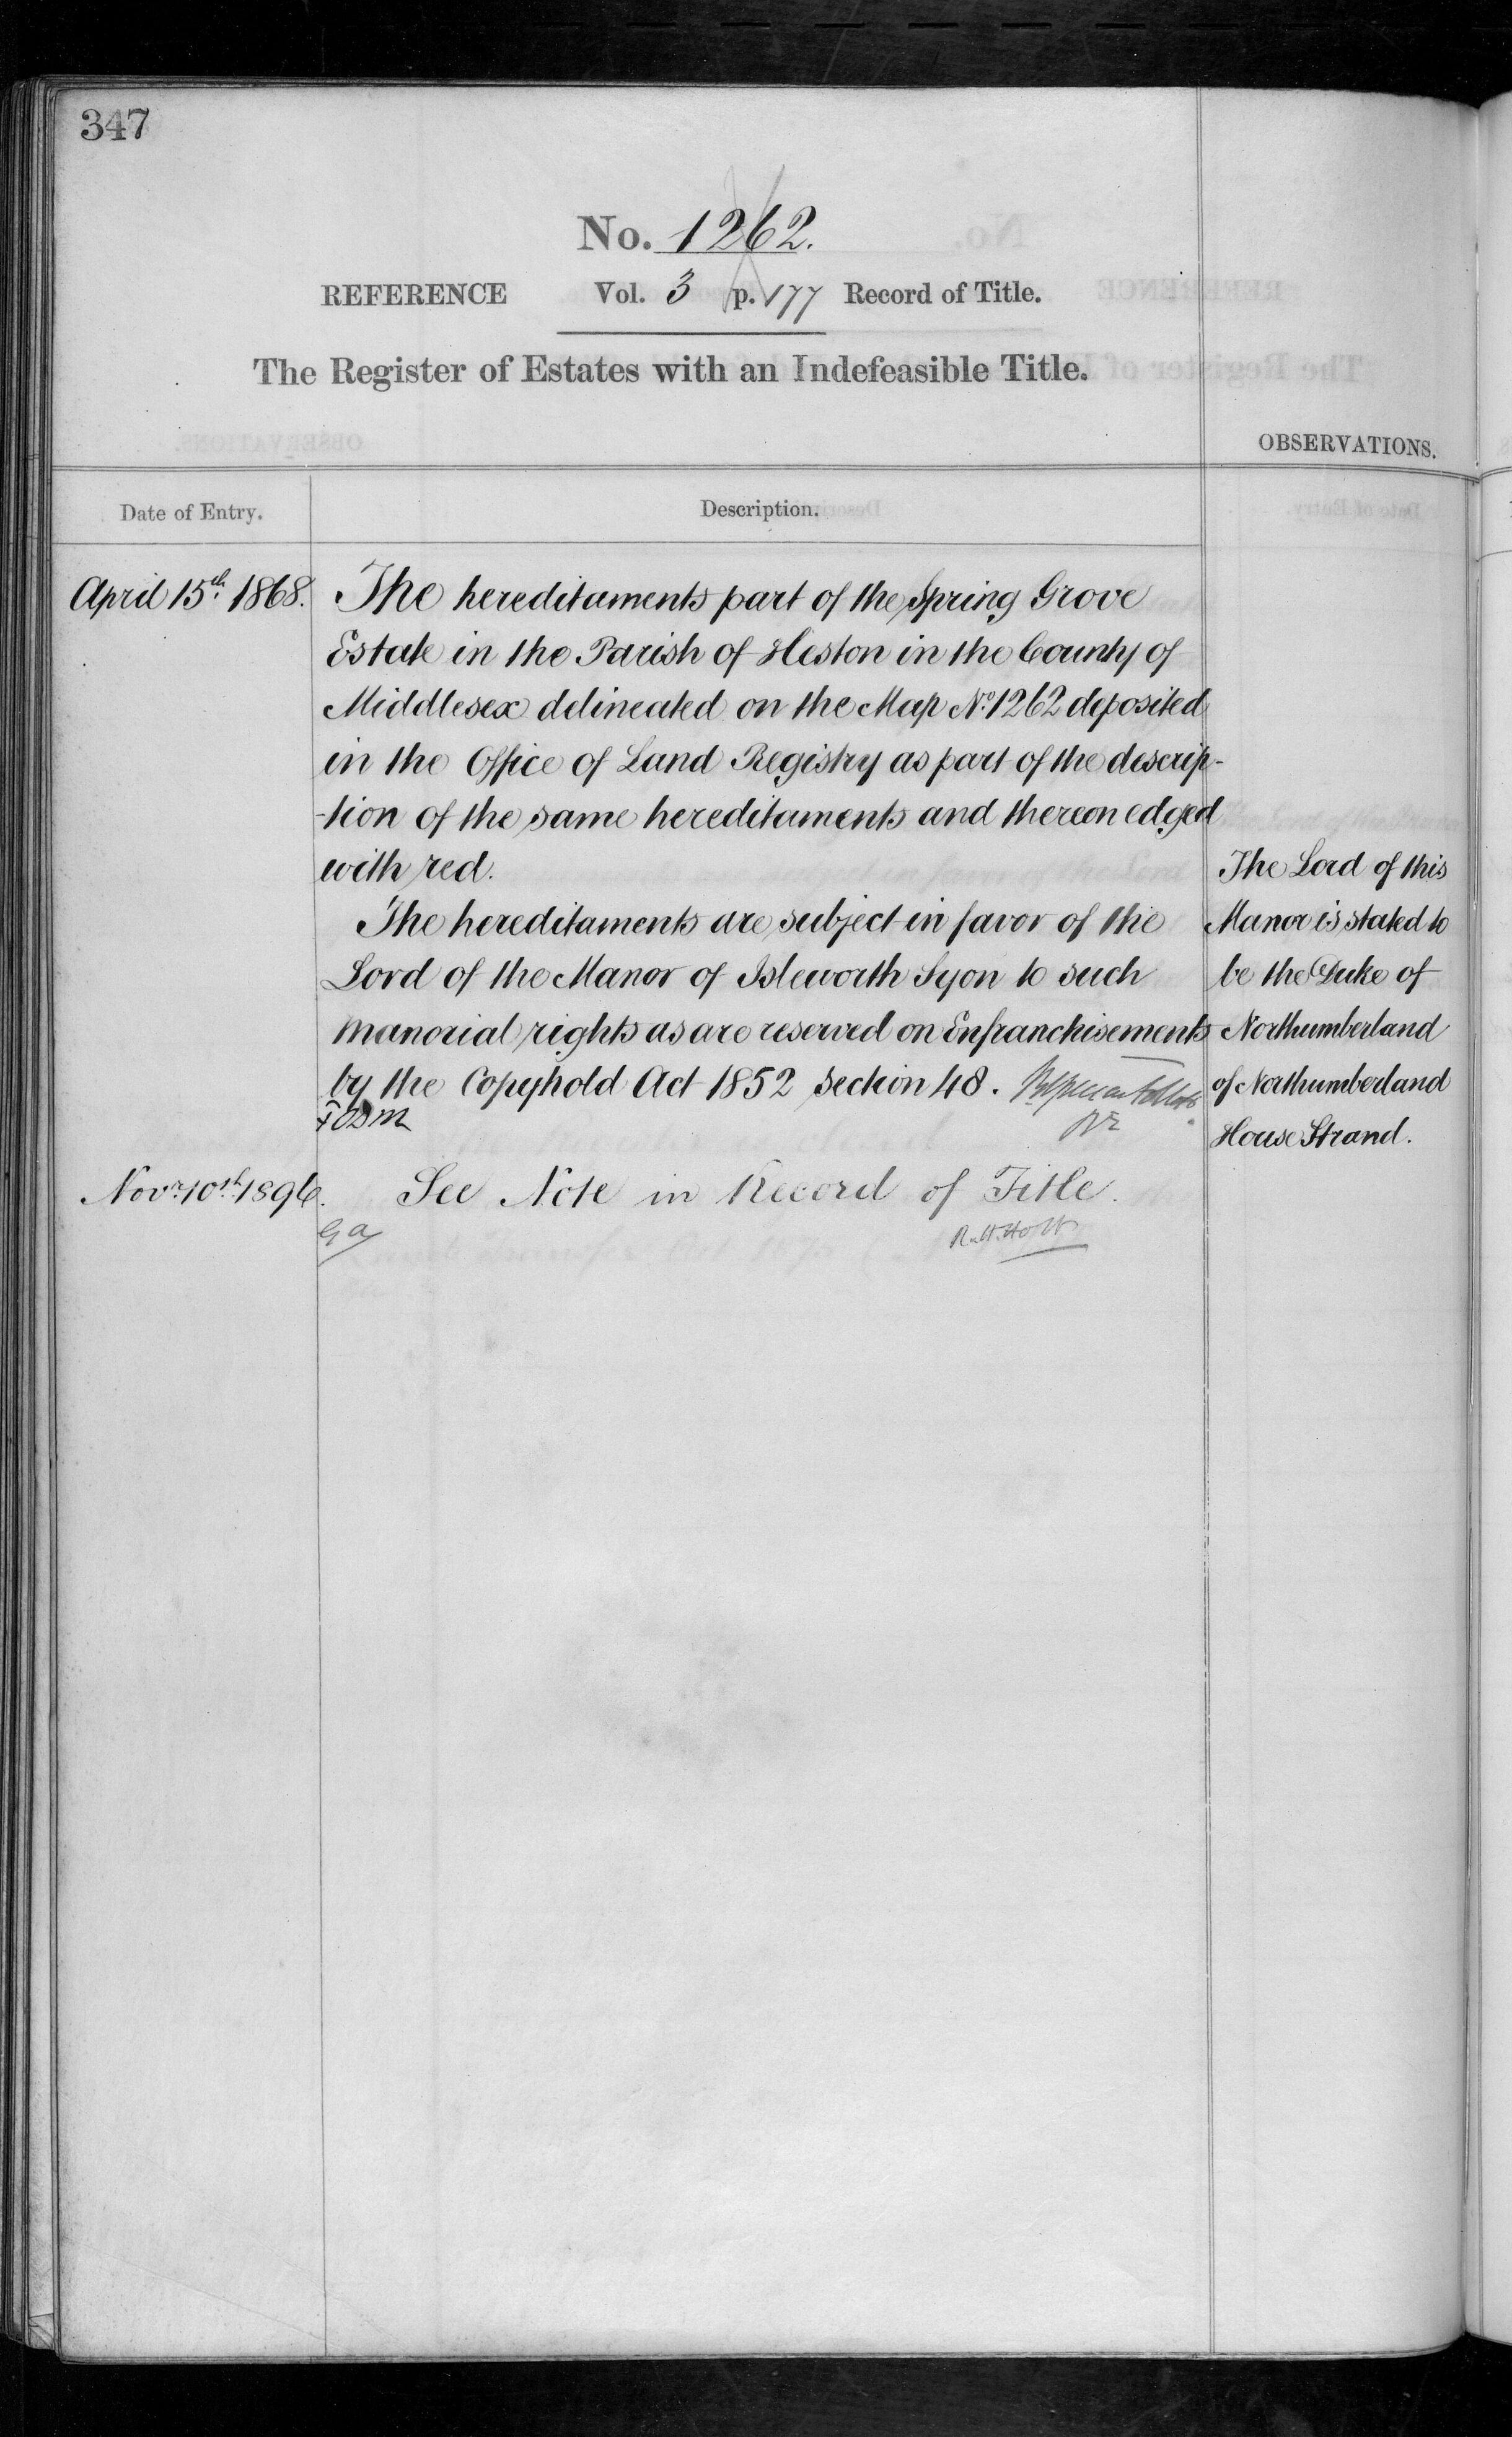 347
No. 1262.
REFERENCE Vol. 3 p. 177 Record of Title.
The Register of Estates with an Indefeasible Title.
OBSERVATIONS.
Date of Entry.
Description.
April 15th 1868.
The hereditaments part of the Spring Grove
Estate in the Parish of Heston in the County of
Middlesex delineated on the Map No. 1262 deposited
in the Office of Land Registry as part of the descrip-
-tion of the same hereditaments and thereon edged
with red.
The hereditaments are subject in favor of the
Lord of the Manor of Isleworth Syon to such
manorial rights as are reserved on Enfranchisements
by the Copyhold Act 1852 Section 48.
The Lord of this
Manor is stated to
be the Duke of
Northumberland
of Northumberland
House Strand.
Novr. 10th 1896.
See Note in Record of Title.
R.H. Holt